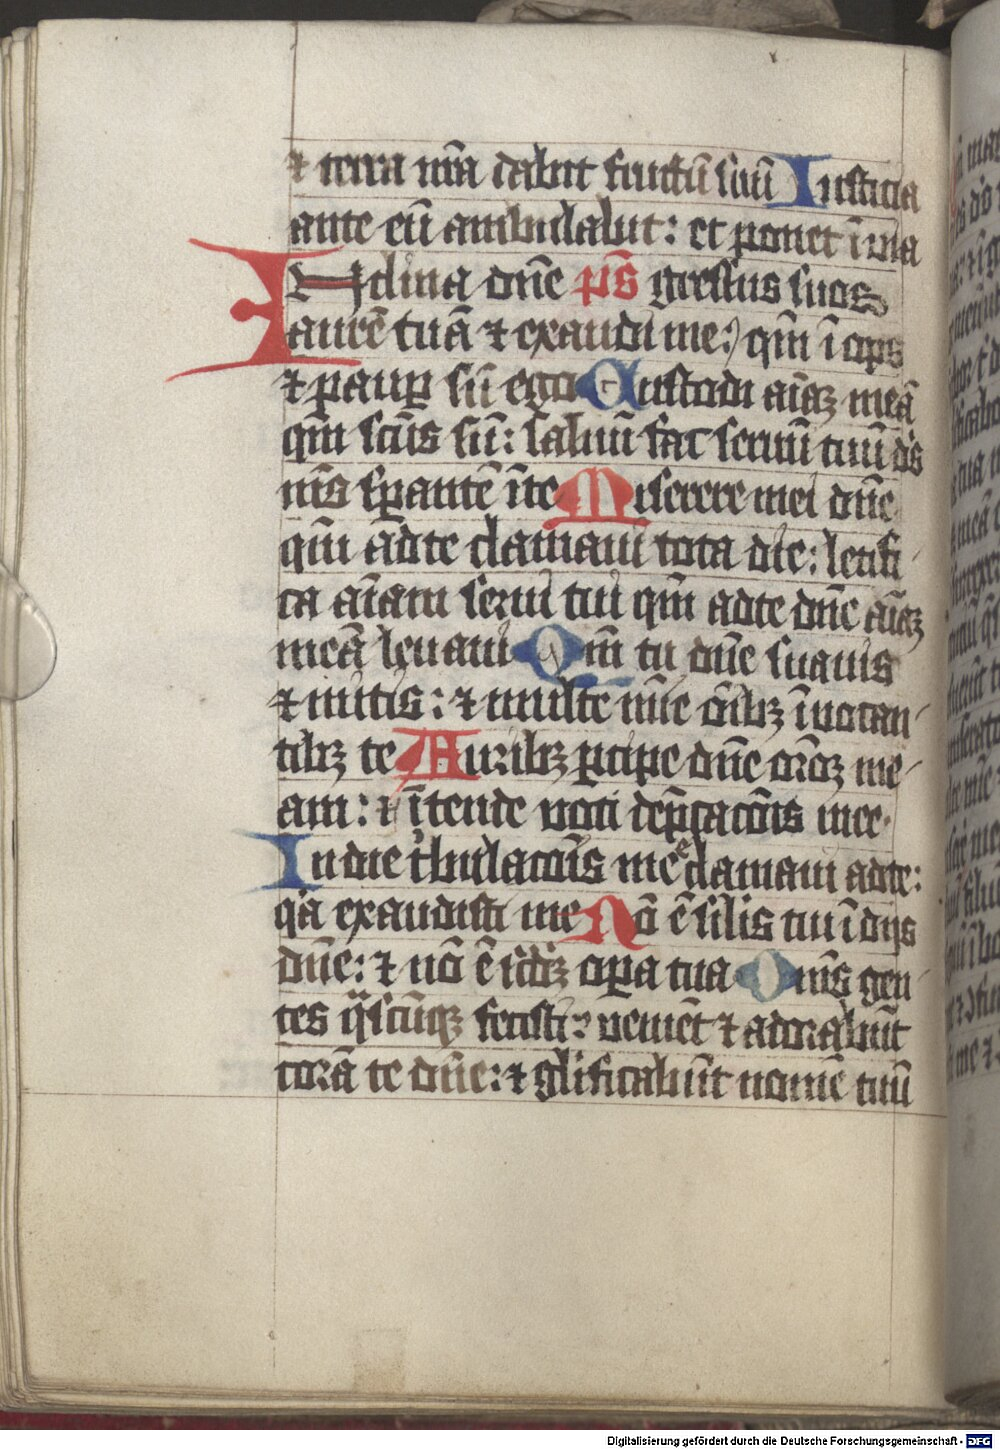 ⁊ terra nr̄a dabit fructū suū Iusticia
ante eū ambulabit: et ponet ī via
Inclina dn̄e p̄s gressus suos
aurē tuā ⁊ exaudi me: qm̄ īops
⁊ paup̲ sū ego Custodi aīaꝫ meā
qm̄ scūs sū: saluū fac seruū tuū ds̄
ms̄ sp̲antē īte Miserere mei dn̄e
qm̄ adte clamaui tota die: letifi-
ca aīam serui tui qm̄ adte dn̄e aīaꝫ
meā leuaui Qm̄ tu dn̄e suauis
⁊ mitis: ⁊ multe mīe oībꝫ īuocan-
tibꝫ te Auribꝫ p̲cipe dn̄e orōeꝫ me-
am: ⁊ ītende voci dep̄cacōis mee.
In die tͥbulacōis mee clamaui adte:
qͥa exaudisti me Nō ē silis tui ī dijs
dn̄e: ⁊ nō ē scd̄ꝫ op̲a tua Om̄s gen-
tes q̈scūqꝫ fecisti: veniēt ⁊ adorabūt
corā te dn̄e: ⁊ gl̄ificabūt nomē tuū
Digitalisierung gefördert durch die Deutsche Forschungsgemeinschaft - DFG